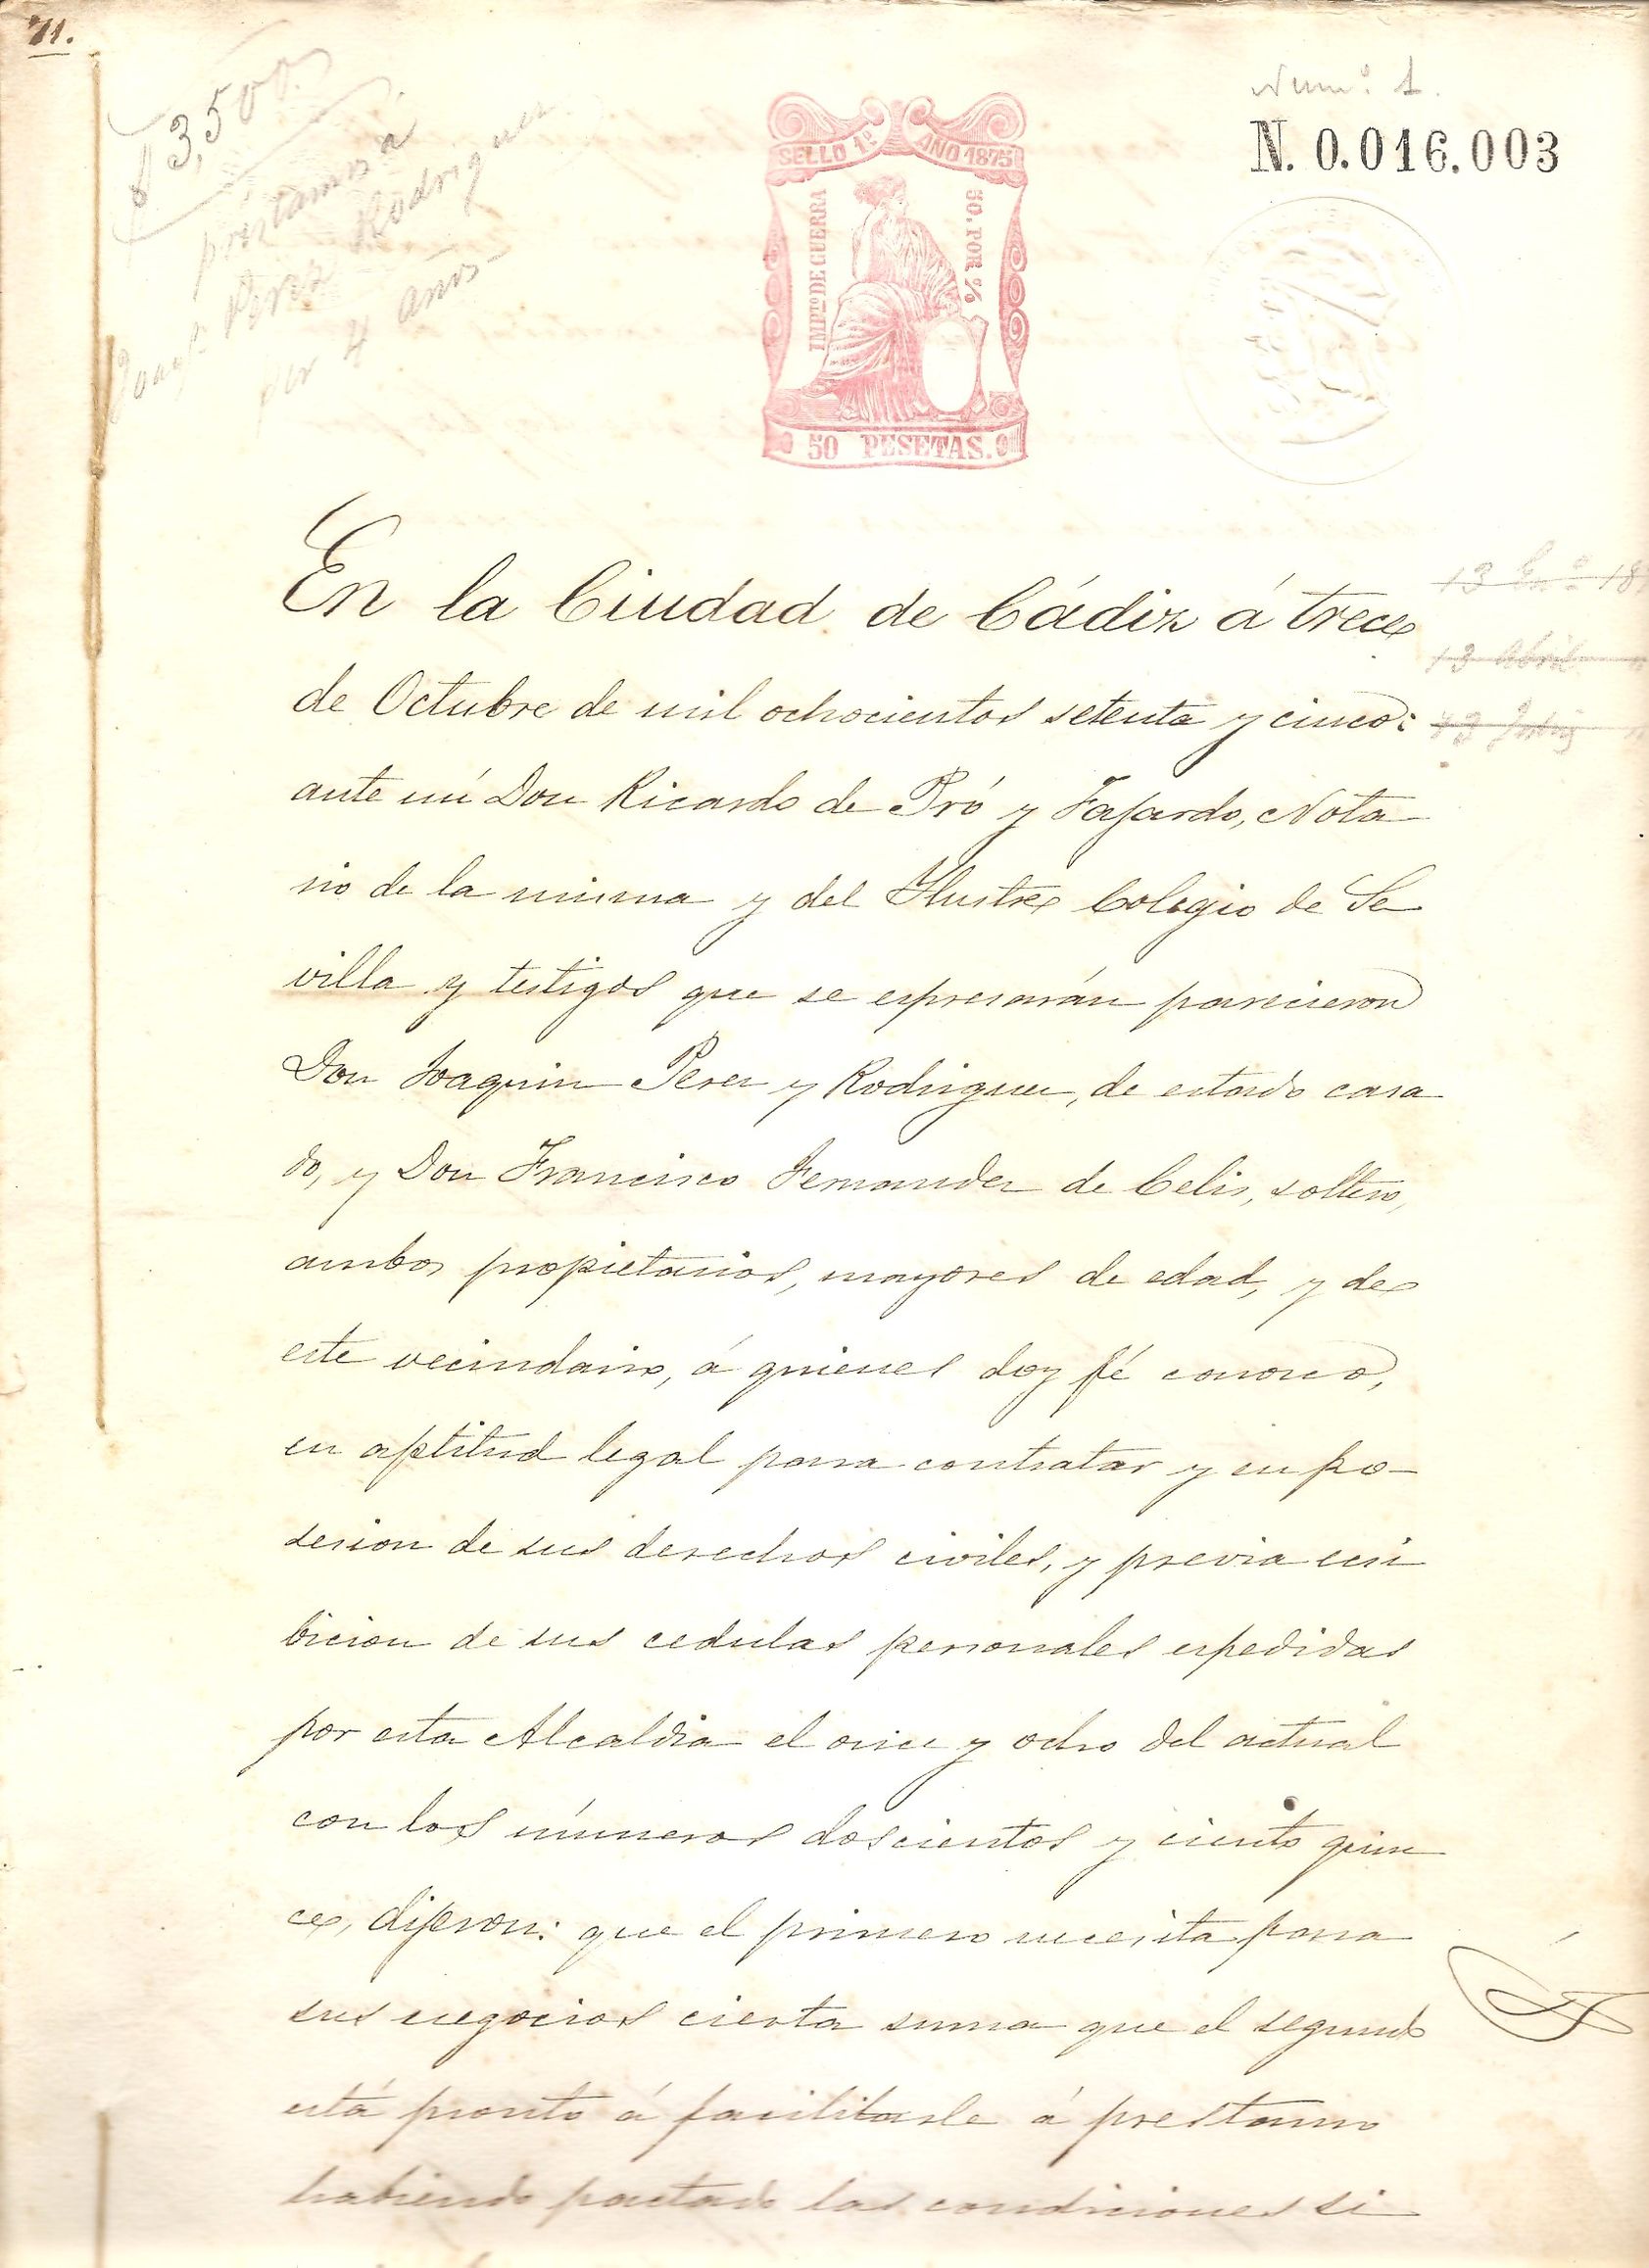 71.
$ 3,500
préstamos á
Joaqn Perez Rodriguez
por 4 años
Num.o 1.
N. 0.016.003
SELLO 1º AÑO 1875
IMPTO DE GUERRA
50. POR %
50 PESETAS.
En la Ciudad de Cádiz á trece
de Octubre de mil ochocientos setenta y cinco:
ante mí Don Ricardo de Pró y Fajardo, Nota
rio de la misma y del Ilustre Colegio de Se
villa y testigos que se espresarán parecieron
Don Joaquin Perez y Rodriguez, de estado casa
do, y Don Francisco Fernandez de Celis, soltero,
ambos propietarios, mayores de edad, y de
este vecindario, á quienes doy fé conozco,
en aptitud legal para contratar y en po-
sesion de sus derechos civiles, y previa esi
bicion de sus cedulas personales espedidas
por esta Alcaldia el once y ocho del actual
con los números doscientos y ciento quin
ce, dijeron: que el primero necesita para
sus negocios cierta suma que el segundo
está pronto á facilitarle á prestamo
habiendo pactado las condiciones si
13 En.o 18
13 Abril
13 Julio